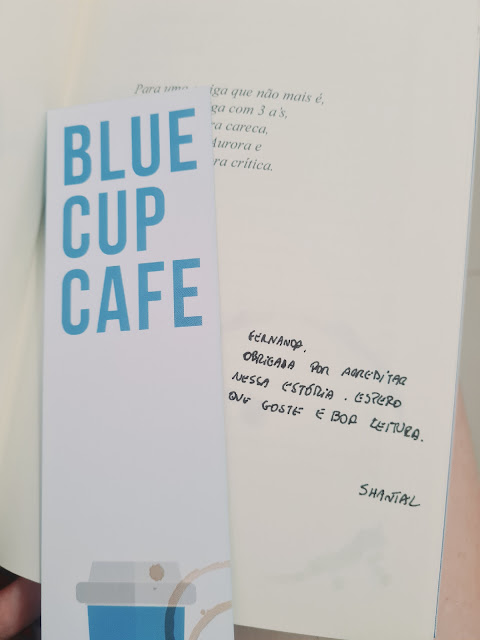 Para uma iga que não mais é,
ga com 3 a's,
ra careca,
Aurora e
ra crítica.
BLUE
CUP
CAFE
FERNANDA.
OBRIGADA POR ACREDITAR
NESSA ESTÓRIA. ESPERO
QUE GOSTE E BOA LEITURA.
SHANTAL